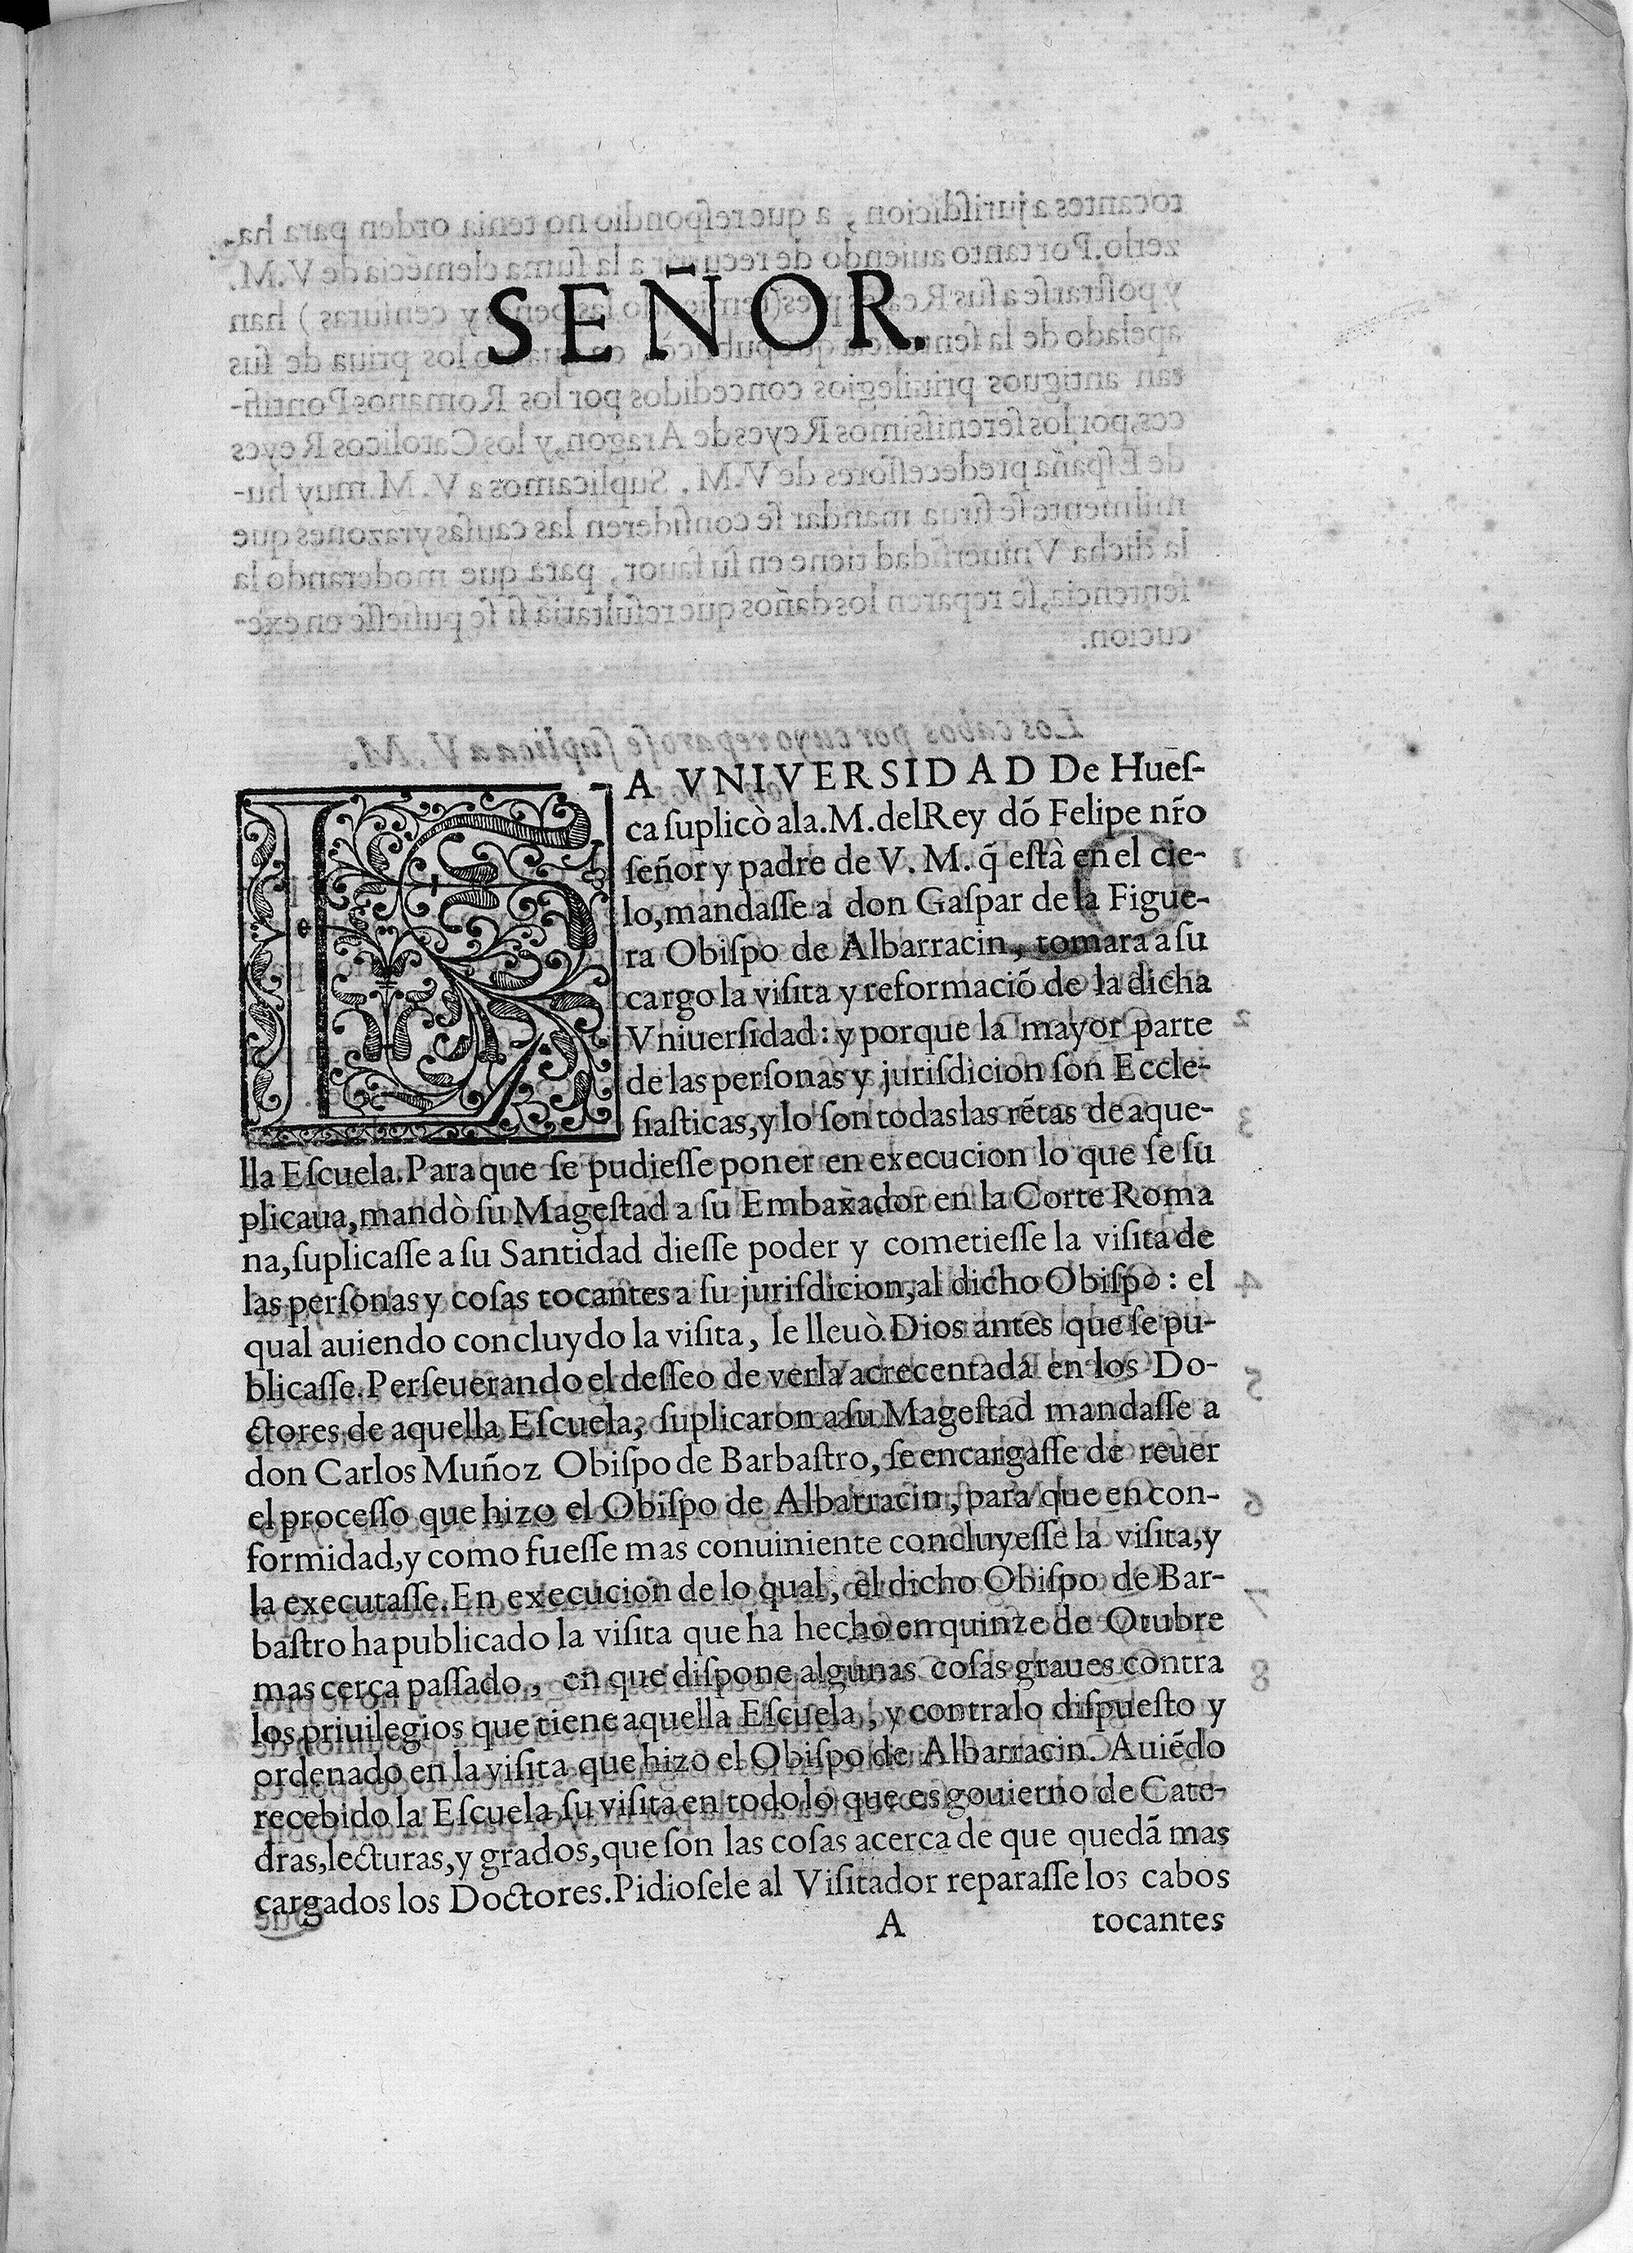 SEÑOR.
LA VNIVERSIDAD De Hueſ-
ca ſuplicò ala.M.delRey dõ Felipe nr̃o
ſeñor y padre de V.M.q̃ eſtà en el cie-
lo,mandaſſe a don Gaſpar de la Figue-
ra Obiſpo de Albarracin, tomara a ſu
cargo la viſita y reformaciõ de la dicha
Vniuerſidad: y porque la mayor parte
de las perſonas y juriſdicion ſon Eccle-
ſiaſticas,y lo ſon todas las rẽtas de aque-
lla Eſcuela.Para que ſe pudieſſe poner en execucion lo que ſe ſu
plicaua,mandò ſu Mageſtad a ſu Embaxador en la Corte Roma
na,ſuplicaſſe a ſu Santidad dieſſe poder y cometieſſe la viſita de
las perſonas y coſas tocantes a ſu juriſdicion,al dicho Obiſpo: el
qual auiendo concluydo la viſita, le lleuò Dios antes que ſe pu-
blicaſſe.Perſeuerando el deſſeo de verla acrecentada en los Do-
ctores de aquella Eſcuela, ſuplicaron a ſu Mageſtad mandaſſe a
don Carlos Muñoz Obiſpo de Barbaſtro, ſe encargaſſe de reuer
el proceſſo que hizo el Obiſpo de Albarracin, para que en con-
formidad,y como fueſſe mas conuiniente concluyeſſe la viſita,y
la executaſſe.En execucion de lo qual, el dicho Obiſpo de Bar-
baſtro ha publicado la viſita que ha hecho en quinze de Otubre
mas cerca paſſado, en que diſpone algunas coſas graues contra
los priuilegios que tiene aquella Eſcuela, y contra lo diſpueſto y
ordenado en la viſita que hizo el Obiſpo de Albarracin. Auiẽdo
recebido la Eſcuela ſu viſita en todo lo que es gouierno de Cate-
dras,lecturas,y grados,que ſon las coſas acerca de que quedã mas
cargados los Doctores.Pidioſele al Viſitador reparaſſe los cabos
A tocantes